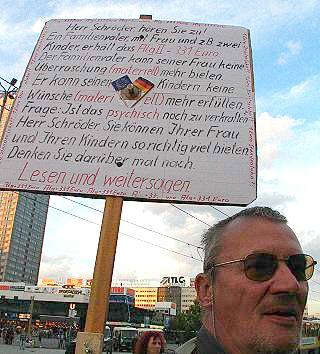 Herr Schröder hören Sie zu!
Ein Familienvater, mit Frau und z.B. zwei
Kinder, erhält das Alg II - 331 Euro
Der Familienvater kann seiner Frau keine
Überraschung (materiell) mehr bieten.
Er kann seinen Kindern keine
Wünsche (materiell) mehr erfüllen.
Frage: Ist das psychisch noch zu verkraften
Herr Schröder, Sie können Ihrer Frau
und Ihren Kindern so richtig viel bieten
Denken Sie darüber mal nach.
Lesen und weitersagen
Alg II - 331 Euro